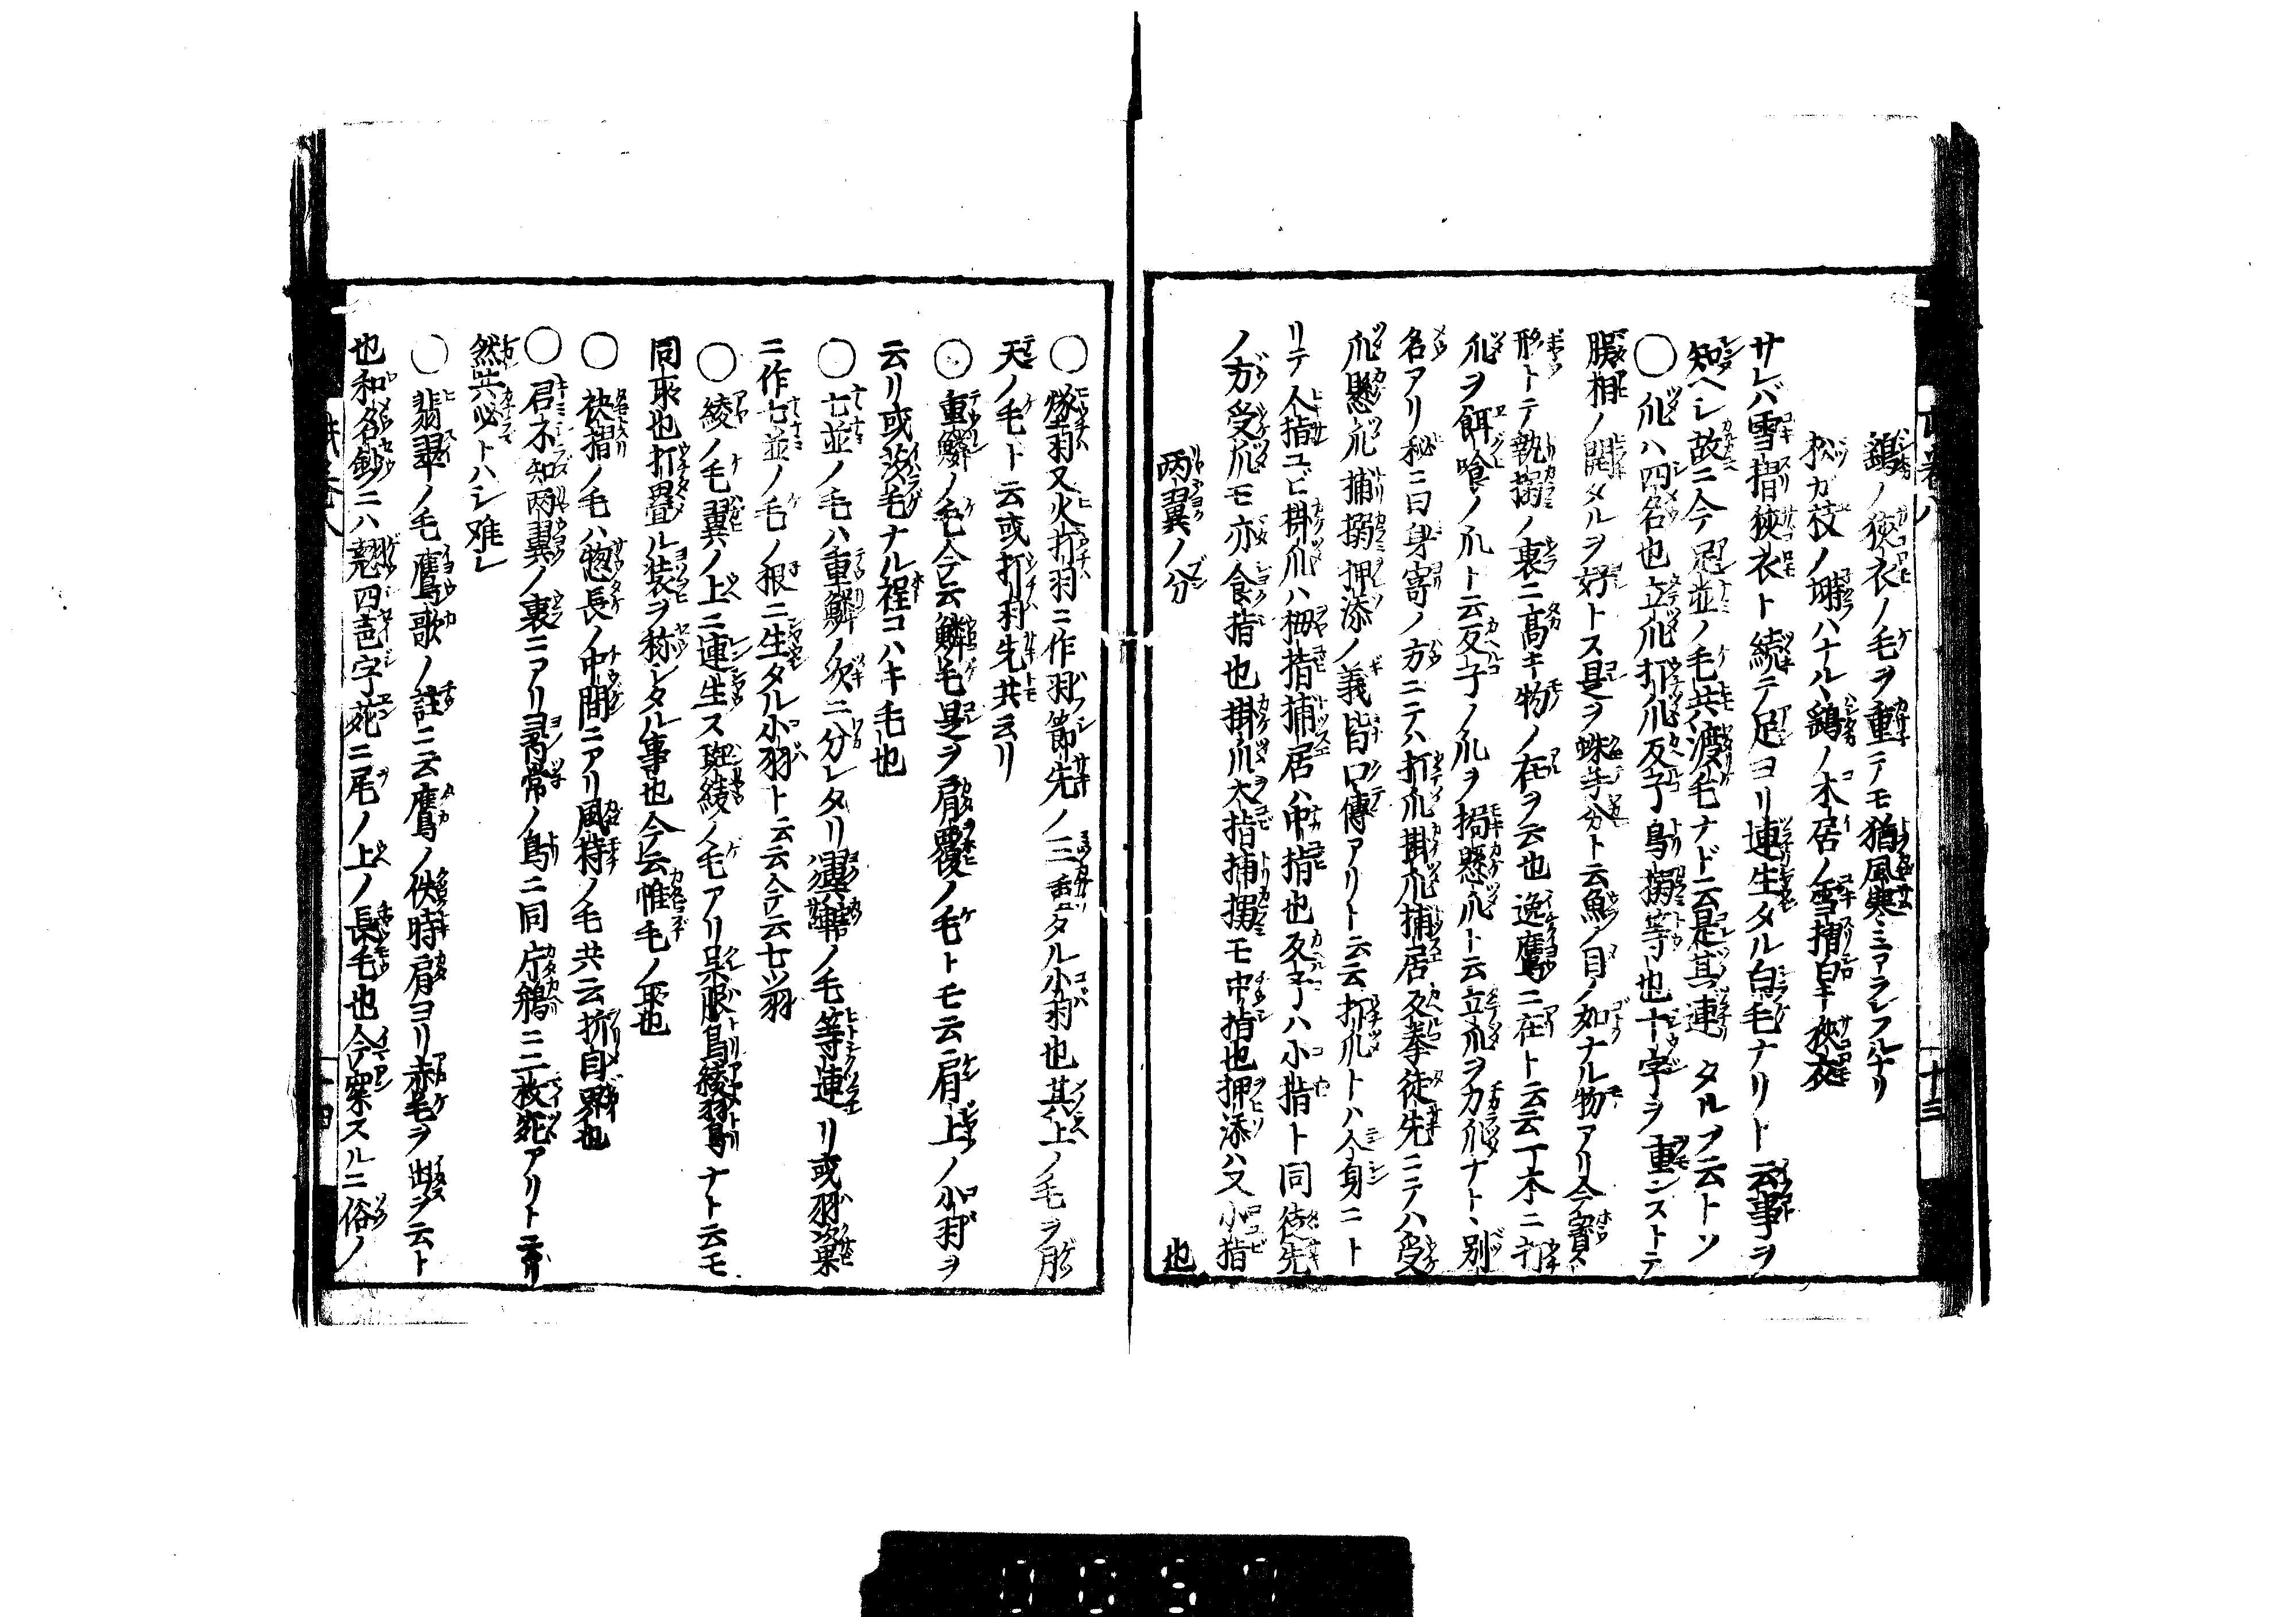 鷂ノ狹衣ノ毛ヲ重テモ猶風寒ミアラレフルナリ
松ガ枝ノ ハナル鷂ノ木居ノ雪摺白キ狹衣
サレバ雪摺狹衣ト続テ足ヨリ連生タル白毛ナリト云事ヲ
知ヘシ故ニ今 並ノ毛共渡毛ナド云是其連タルヲ云トソ
○爪ハ四名也立爪打爪反子鳥搦等也十字ヲ重ンストテ
相ノ開タルヲ好トス是ヲ蛛手分ト云魚ノ目ノ如ナル物アリ今實
形トテ執搦ノ裏ニ高キ物ノ在ヲ云也逸鷹ニ在ト云云丁木ニ打
爪ヲ餌喰ノ爪ト云反子ノ爪ヲ 懸爪ト云立爪ヲカ爪ナト丶別
名アリ秘ニ曰身寄ノ方ニテハ打爪掛爪捕居反拳徒先ニテハ受
爪懸爪捕搦押添ノ義皆口傳アリト云云打爪トハ人身ニト
リテ人指ユビ掛爪ハ拇指捕居ハ中指也反子ハ小指ト同徒先
ノ方受爪モ亦食指也掛爪大指捕搦モ中指也押添ハ又小指
也
両翼ノ分
○燧羽又火打羽ニ作羽節先ノ三重タル小羽也其上ノ毛ヲ
天ノ毛ト云或打羽先共云リ
○重鱗ノ毛今云鱗毛是ヲ肩覆ノ毛トモ云肩上ノ小羽ヲ
云リ或茨毛ナル程コハキ毛也
○七並ノ毛ハ重鱗ノ次ニ分レタリ ノ毛等連リ或羽 
ニ作七並ノ毛ノ根ニ生タル小羽ト云云今云七ツ羽
○綾ノ毛翼ノ上ニ連生ス斑綾ノ毛アリ呉服鳥綾羽鳥ナト云モ
同衆也打畳ル装ヲ称シタル事也今云帷毛ノ耳也
○袂摺ノ毛ハ惣長ノ中間ニアリ風持ノ毛共云折目 也
○君不知両翼ノ裏ニアリ尋常ノ鳥ニ同片鵜ニ二枚宛アリト云リ
然共必トハシ难レ
○翡翠ノ毛鷹歌ノ註ニ云鷹ノ佚時肩ヨリ赤毛ヲ出ヲ云ト
也和名鈔ニハ翹四 字苑ニ尾ノ上ノ長毛也今案スルニ俗ノ